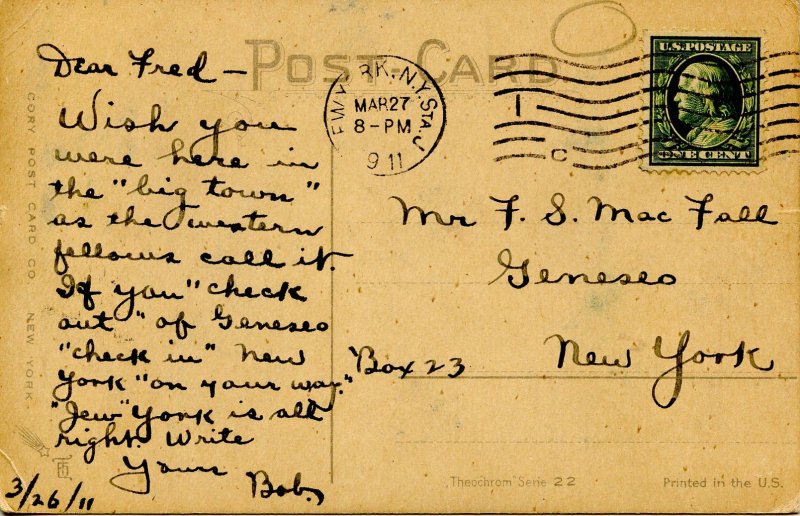 POST CARD
Dear Fred —
Wish you
were here in
the "big town"
as the western
fellows call it.
If you "check
out" of Geneseo
"check in" New
York "on your way."
"Jew" York is all
right. Write
Yours
Bob.
3/26/11
CORY POST CARD CO. NEW YORK.
NEW YORK, N.Y. STA. J
MAR 27
8-PM
1911
1
C
U.S. POSTAGE
ONE CENT
Mr F. S. Mac Fall
Geneseo
New York
Box 23
"Theochrom" Serie 22
Printed in the U.S.